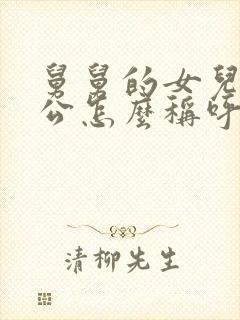 舅舅的女兒
公怎麼稱呼
清柳先生